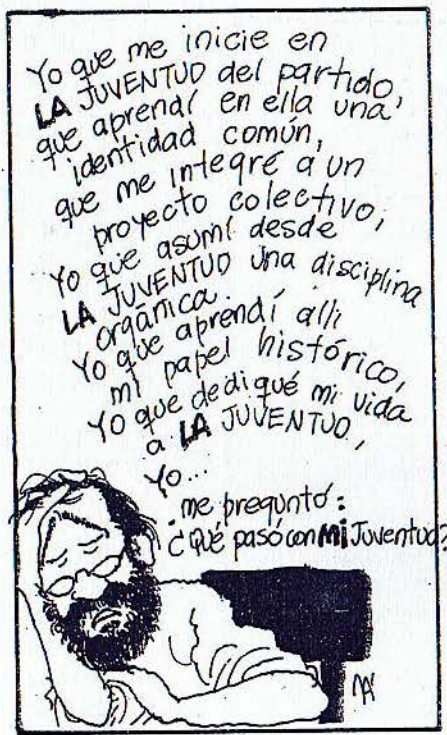 Yo que me inicie en
LA JUVENTUD del partido,
que aprendí en ella una
identidad común,
que me integré a un
proyecto colectivo,
Yo que asumí desde
LA JUVENTUD una disciplina
orgánica.
Yo que aprendí allí
mi papel histórico,
Yo que dediqué mi vida
a LA JUVENTUD,
Yo...
me preguntó:
¿Qué pasó con MI Juventud?